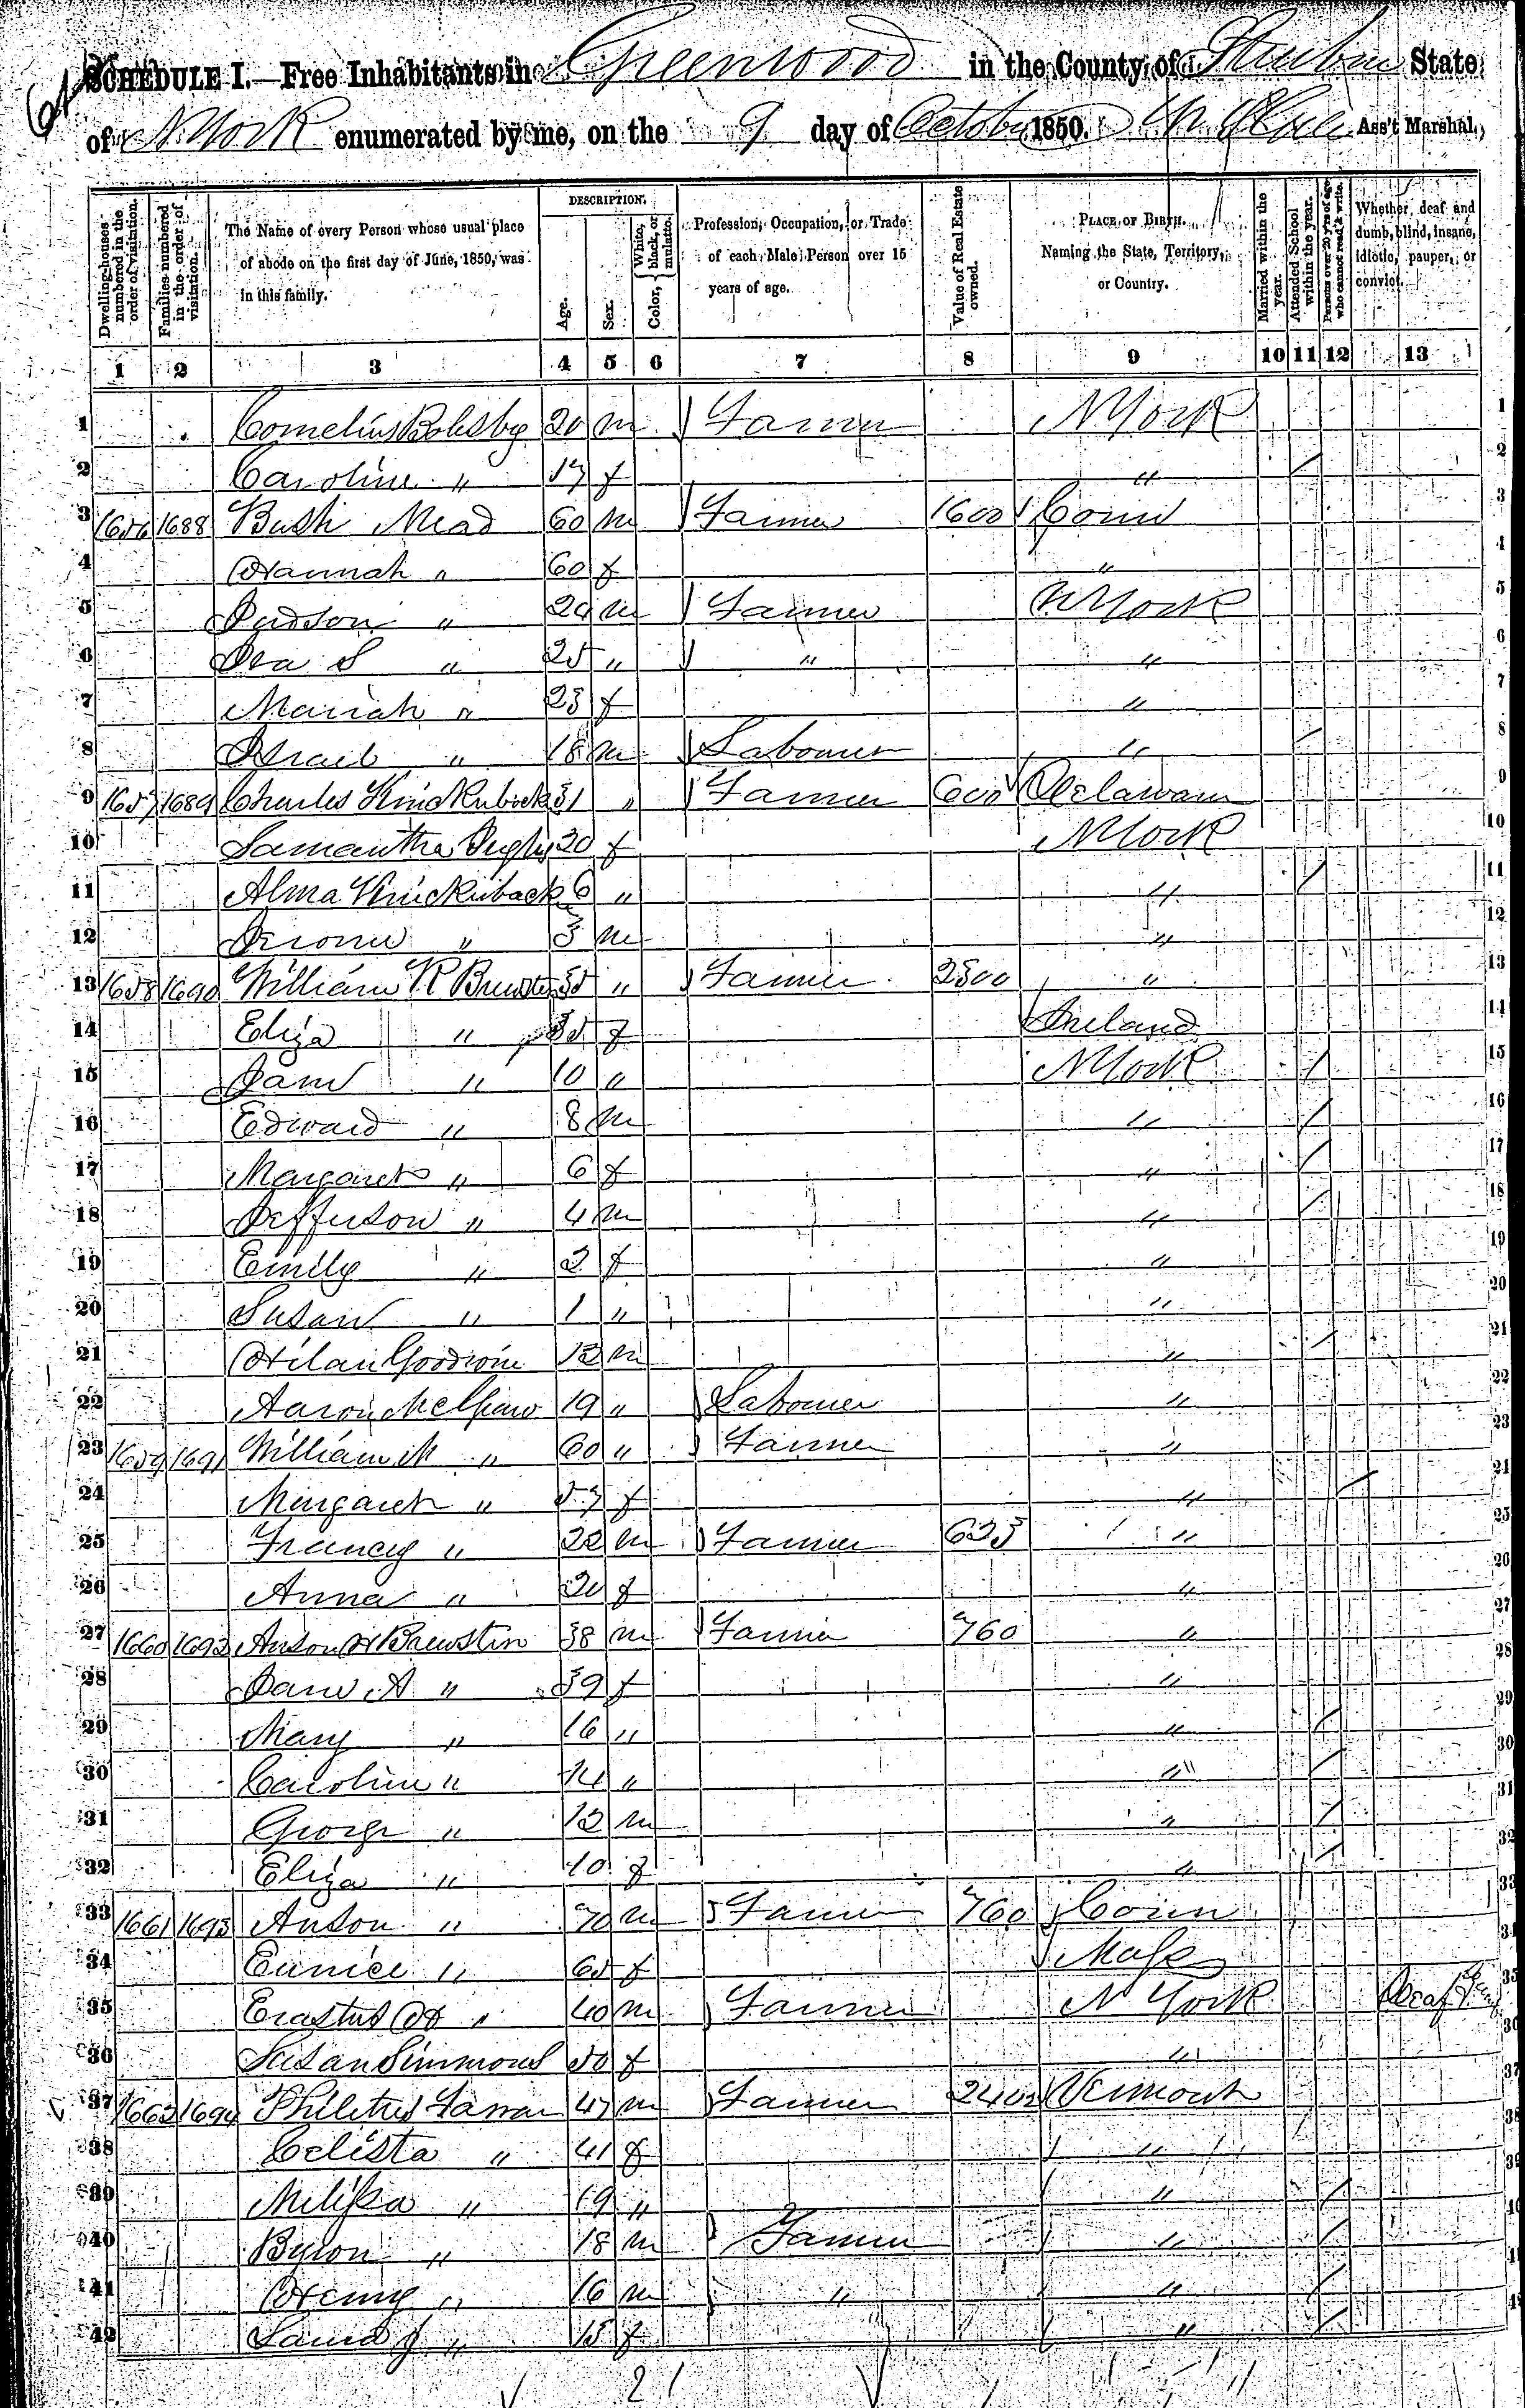 SCHEDULE I.—Free Inhabitants in Greenwood in the County of Steuben State
of N York enumerated by me, on the 9 day of October 1850. Ass't Marshal.
Dwelling-houses numbered in the order of visitation.
Families numbered in the order of visitation.
The Name of every Person whose usual place of abode on the first day of June, 1850, was in this family.
DESCRIPTION.
Age.
Sex.
Color, White, black, or mulatto.
Profession, Occupation, or Trade of each Male Person over 15 years of age.
Value of Real Estate owned.
PLACE OF BIRTH. Naming the State, Territory, or Country.
Married within the year.
Attended School within the year.
Persons over 20 y'rs of age who cannot read & write.
Whether deaf and dumb, blind, insane, idiotic, pauper, or convict.
1 2 3 4 5 6 7 8 9 10 11 12 13
1 Cornelius 20 m Farmer N York 1
2 Caroline " 17 f " / 2
3 1656 1688 Bush Mead 60 m Farmer 1600 Conn 3
4 Hannah " 60 f " 4
5 Judson " 24 m Farmer N York 5
6 Ira S " 25 " " " 6
7 Mariah " 23 f " 7
8 Israel " 18 m Labourer " / 8
9 1657 1689 Charles 31 " Farmer 600 Delaware 9
10 Samantha 20 f N York 10
11 Alma 6 " " / 11
12 Jerome " 3 m " 12
13 1658 1690 William R Brewster 35 " Farmer 2300 " 13
14 Eliza " 35 f Ireland 14
15 Jane " 10 " N York / 15
16 Edward " 8 m " / 16
17 Margaret " 6 f " / 17
18 Jefferson " 4 m " / 18
19 Emily " 2 f " 19
20 Susan " 1 " " 20
21 Goodwin 12 m " / 21
22 Aaron 19 " Labourer " 22
23 1659 1691 William M " 60 " Farmer " 23
24 Margaret " 57 f " / 24
25 Francis " 22 m Farmer 623 " 25
26 Anna " 20 f " 26
27 1660 1692 Anson H Brewster 38 m Farmer 760 " 27
28 Jane A " 39 f " 28
29 Mary " 16 " " / 29
30 Caroline " 14 " " / 30
31 George " 12 m " / 31
32 Eliza " 10 f " / 32
33 1661 1693 Anson " 70 m Farmer 760 Conn 33
34 Eunice " 65 f Mass 34
35 Erastus H " 40 m Farmer N York Deaf & Dumb 35
36 Susan Simmons 50 f " 36
37 1662 1694 Philetus Farran 47 m Farmer 2400 Vermont 37
38 Celista " 41 f " 38
39 Melissa " 19 " " / 39
40 Byron " 18 m Farmer " / 40
41 Henry " 16 m " " / 41
42 Laura J " 15 f " / 42
21